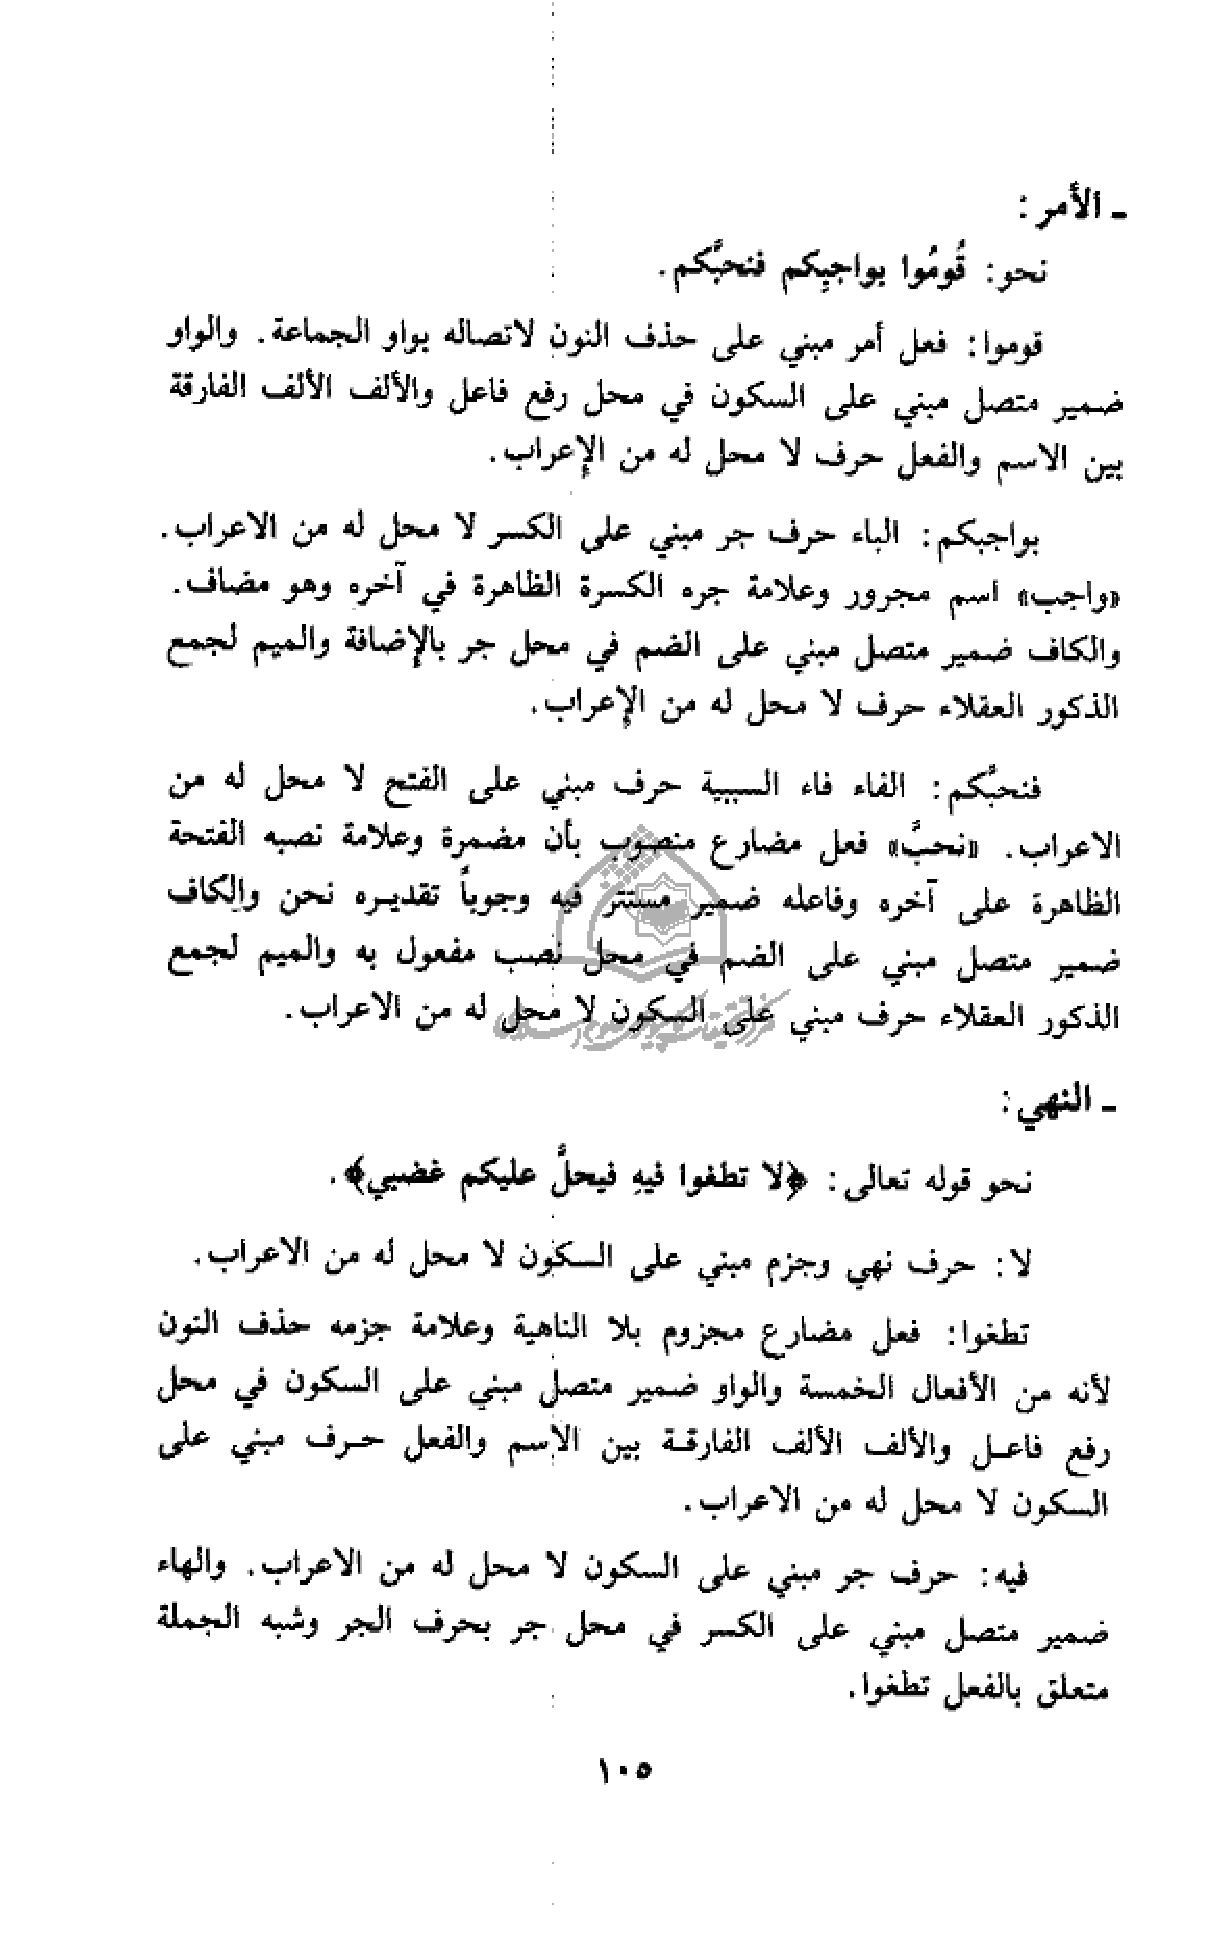 ـ الأمر:
نحو: قُومُوا بواجبِكم فنحبَّكم.
قوموا: فعل أمر مبني على حذف النون لاتصاله بواو الجماعة. والواو
ضمير متصل مبني على السكون في محل رفع فاعل والألف الألف الفارقة
بين الاسم والفعل حرف لا محل له من الإعراب.
بواجبكم: الباء حرف جر مبني على الكسر لا محل له من الاعراب.
«واجب» اسم مجرور وعلامة جره الكسرة الظاهرة في آخره وهو مضاف.
والكاف ضمير متصل مبني على الضم في محل جر بالإضافة والميم لجمع
الذكور العقلاء حرف لا محل له من الإعراب.
فنحبَّكم: الفاء فاء السببية حرف مبني على الفتح لا محل له من
الاعراب. «نحبَّ» فعل مضارع منصوب بأن مضمرة وعلامة نصبه الفتحة
الظاهرة على آخره وفاعله ضمير مستتر فيه وجوباً تقديره نحن والكاف
ضمير متصل مبني على الضم في محل نصب مفعول به والميم لجمع
الذكور العقلاء حرف مبني على السكون لا محل له من الاعراب.
ـ النهي:
نحو قوله تعالى: ﴿لا تطغوا فيهِ فيحلَّ عليكم غضبي﴾.
لا: حرف نهي وجزم مبني على السكون لا محل له من الاعراب.
تطغوا: فعل مضارع مجزوم بلا الناهية وعلامة جزمه حذف النون
لأنه من الأفعال الخمسة والواو ضمير متصل مبني على السكون في محل
رفع فاعـل والألف الألف الفارقـة بين الاسم والفعل حـرف مبني على
السكون لا محل له من الاعراب.
فيه: حرف جر مبني على السكون لا محل له من الاعراب. والهاء
ضمير متصل مبني على الكسر في محل جر بحرف الجر وشبه الجملة
متعلق بالفعل تطغوا.
١٠٥